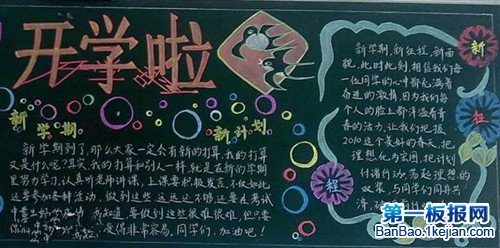 开学啦
新学期
新计划
新学期到了,那么大家一定会有新的打算,我的打算
又是什么呢?其实,我的打算和别人一样,就是在新的学期
里努力学习,认真听老师讲课,上课要积极发言,不仅如此
还要参加各种活动,做到这些 远远还不够 还要在考试
我知道,要做到这些很难很难,但只要
变得非常容易,同学们,加油吧!
新
征
程
新学期,新征程,新面
貌,此时此刻,相信我们每
一位同学的心中都充满着
奋进的激情,因为我们每
个人的脸上都洋溢着青
春的活力,让我们把握
2010这个美好的春天,把
理想化为宏图,把计划
付诸行动,高起理想的
风帆,与同学们同舟共
济,
第一板报网
www.1kejian.com
BanBao.1kejian.com